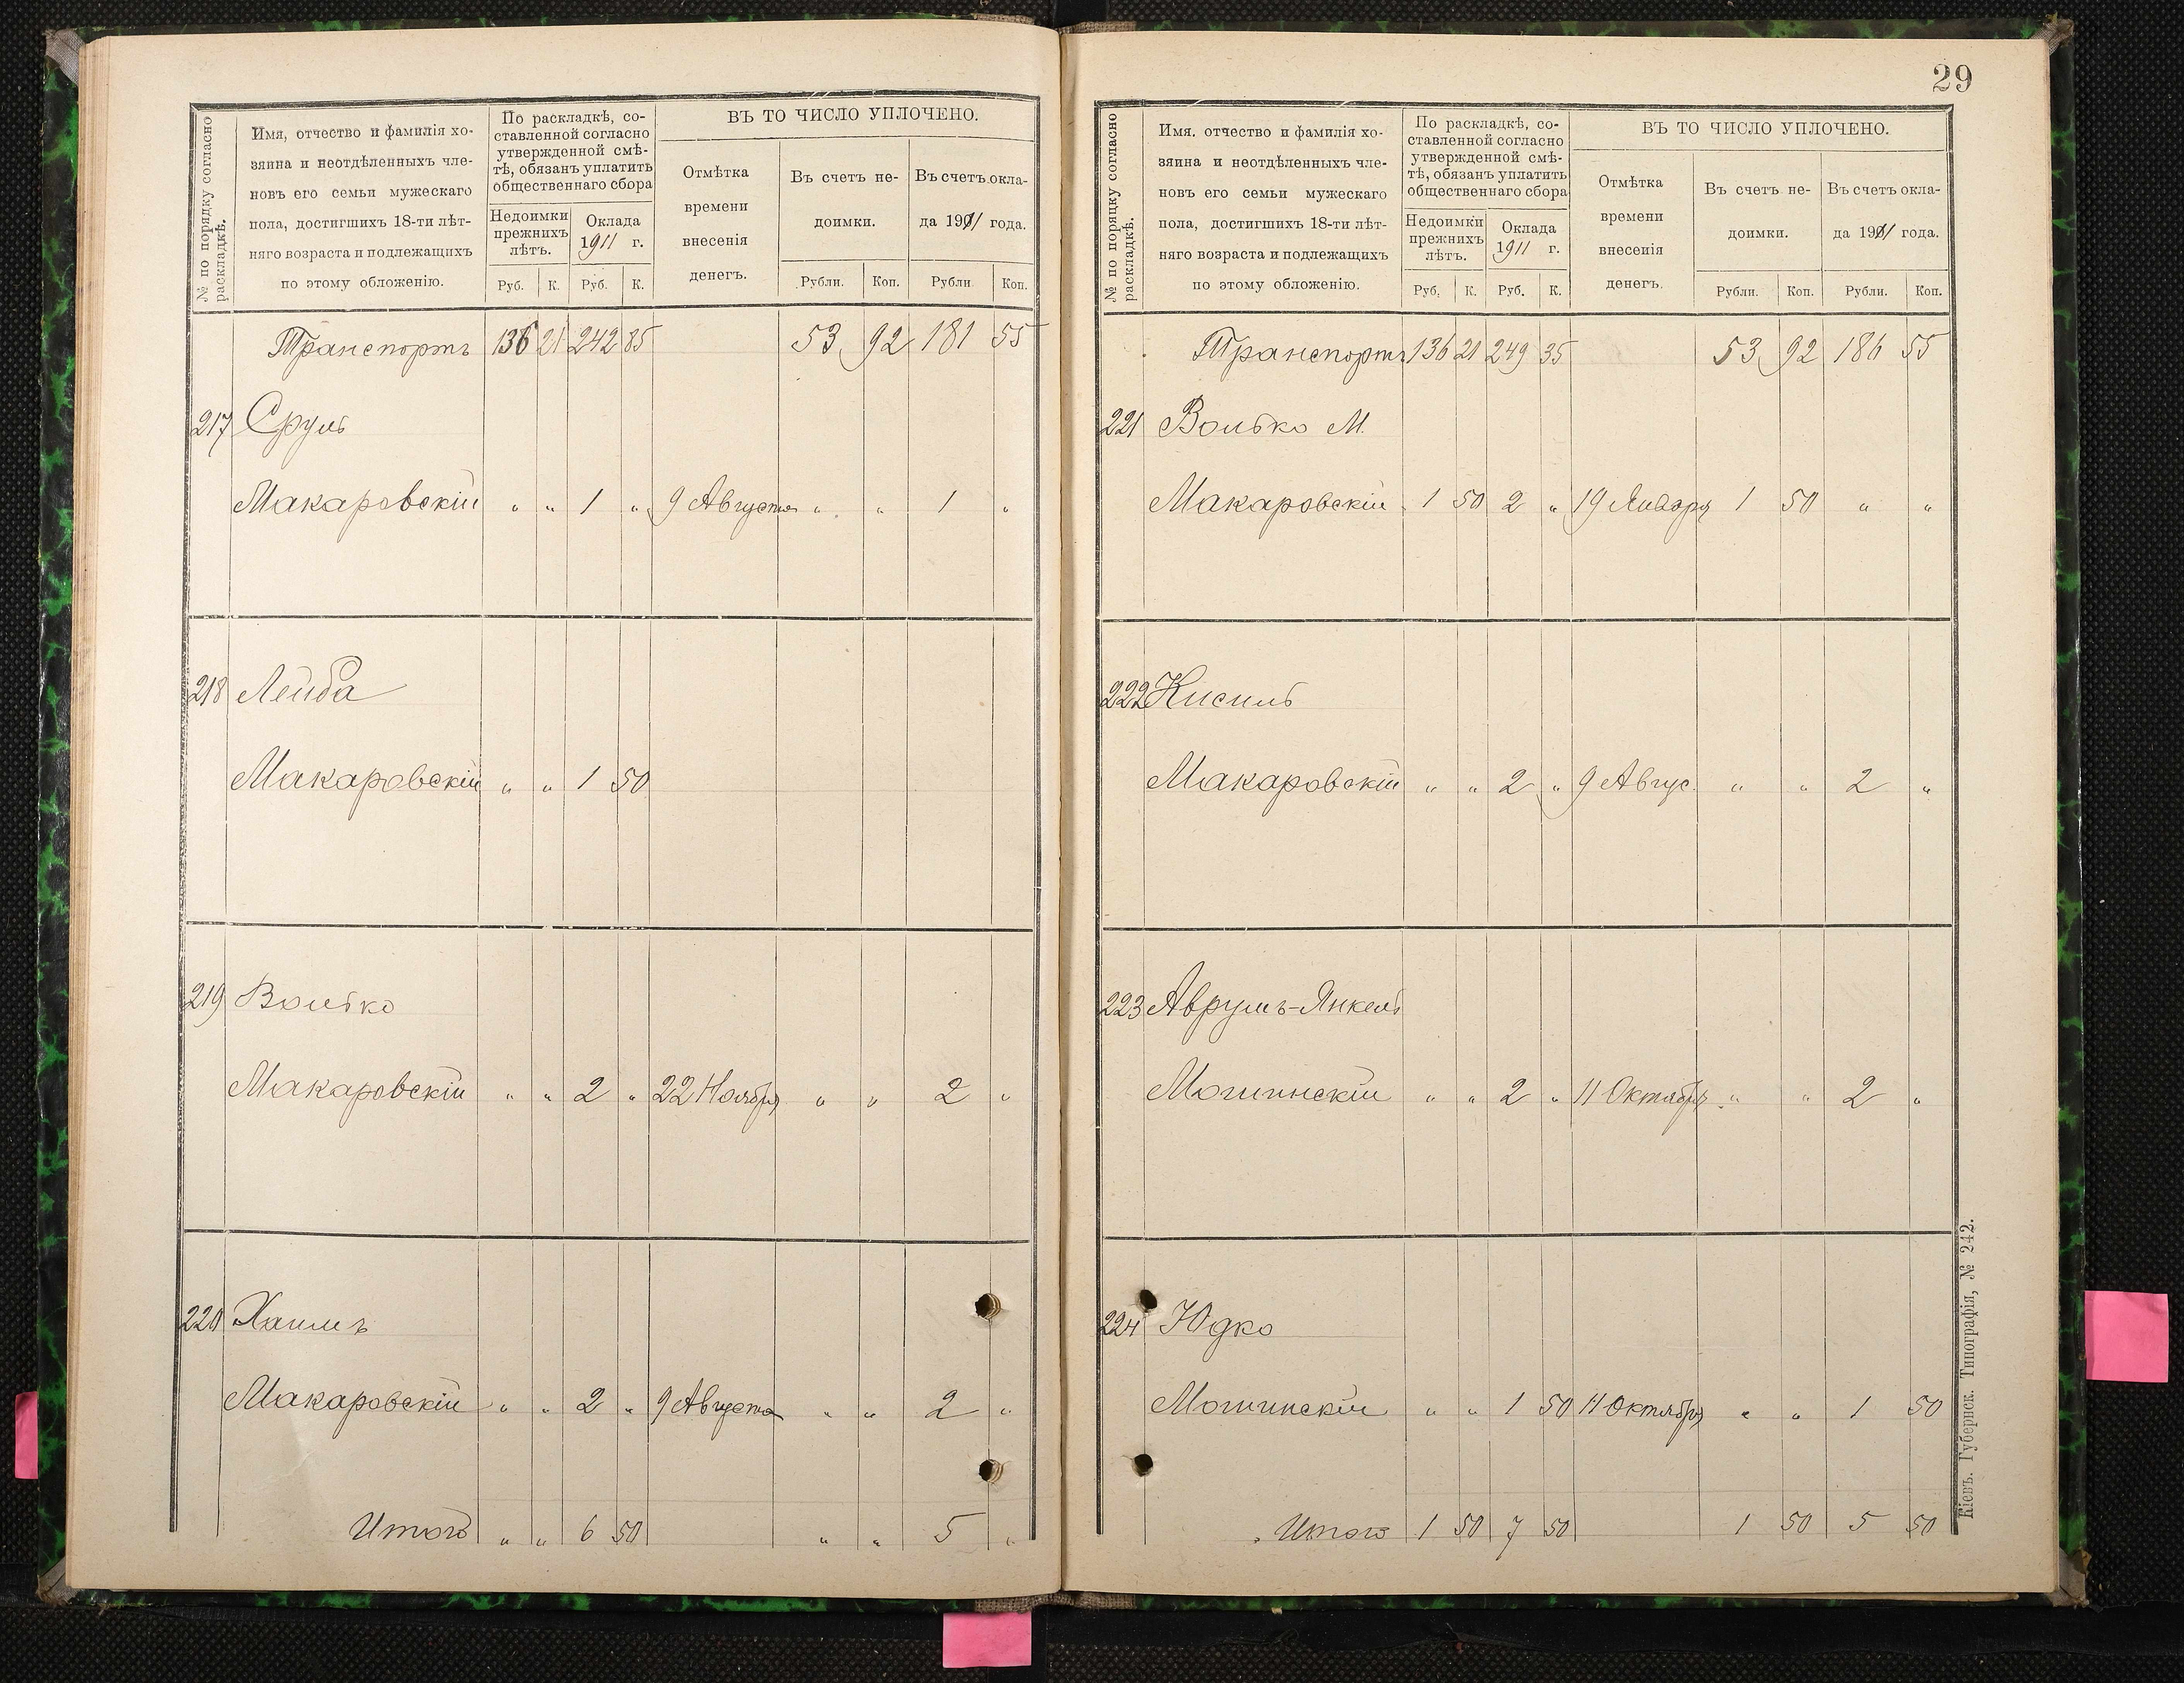 № по порядку согласно раскладкѣ.
Имя, отчество и фамилія хо-
зяина и неотдѣленныхъ чле-
новъ его семьи мужескаго
пола, достигшихъ 18-ти лѣт-
няго возраста и подлежащихъ
по этому обложенію.
По раскладкѣ, со-
ставленной согласно
утвержденной смѣ-
тѣ, обязанъ уплатить
общественнаго сбора
Недоимки
прежнихъ
лѣтъ.
Оклада
1911 г.
Руб. К. Руб. К.
ВЪ ТО ЧИСЛО УПЛОЧЕНО.
Отмѣтка
времени
внесенія
денегъ.
Въ счетъ не-
доимки.
Въ счетъ окла-
да 1911 года.
Рубли. Коп. Рубли Коп.
Транспортъ 136 21 242 85 53 92 181 55
217 Сруль
Макаровскій " " 1 " 9 Августа " " 1 "
218 Лейба
Макаровскій " " 1 50
219 Волько
Макаровскій " " 2 " 22 Ноября " " 2 "
220 Хаимъ
Макаровскій " " 2 " 9 Августа " " 2 "
Итого " " 6 50 " " 5 "
29
№ по порядку согласно раскладкѣ.
Имя. отчество и фамилія хо-
зяина и неотдѣленныхъ чле-
новъ его семьи мужескаго
пола, достигшихъ 18-ти лѣт-
няго возраста и подлежащихъ
по этому обложенію.
По раскладкѣ, со-
ставленной согласно
утвержденной смѣ-
тѣ, обязанъ уплатить
общественнаго сбора
Недоимки
прежнихъ
лѣтъ.
Оклада
1911 г.
Руб. К. Руб. К.
ВЪ ТО ЧИСЛО УПЛОЧЕНО.
Отмѣтка
времени
внесенія
денегъ.
Въ счетъ не-
доимки.
Въ счетъ окла-
да 1911 года.
Рубли. Коп. Рубли. Коп.
Транспортъ 136 21 249 35 53 92 186 55
221 Волько М.
Макаровскій 1 50 2 " 19 Января 1 50 " "
222 Кисиль
Макаровскій " " 2 " 9 Авгус. " " 2 "
223 Аврумъ-Янкель
" " 2 " 11 Октября " " 2 "
224 Юдко
" " 1 50 11 Октября " " 1 50
Итого 1 50 7 50 1 50 5 50
Кіевъ. Губернск. Типографія, № 242.